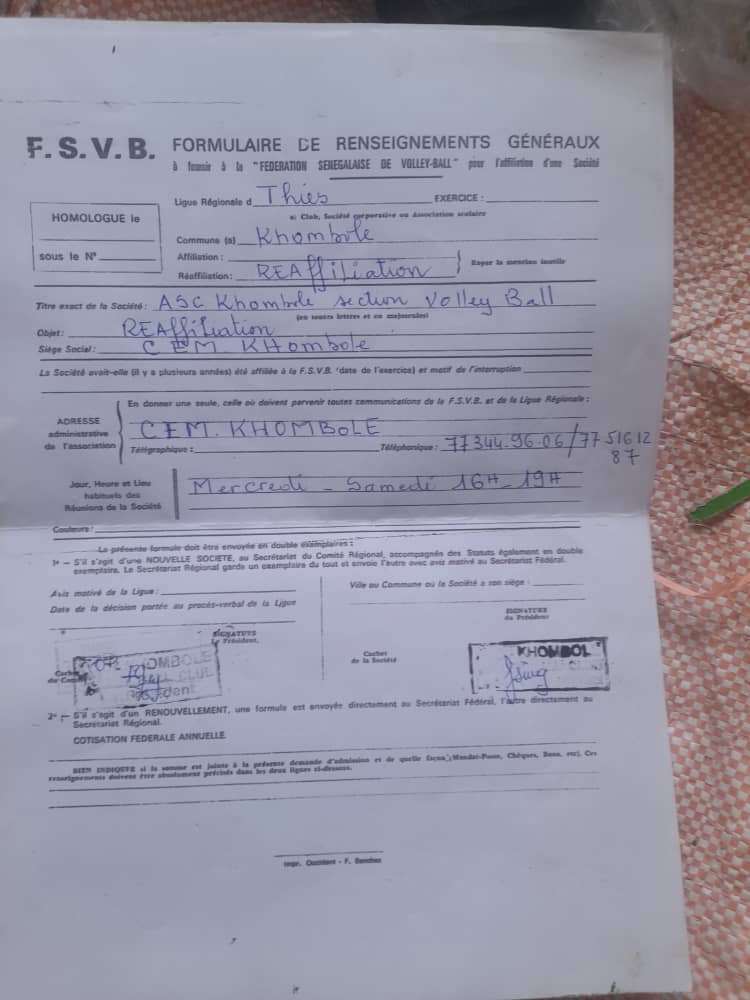 F.S.V.B. FORMULAIRE DE RENSEIGNEMENTS GÉNÉRAUX
à fournir à la "FEDERATION SENEGALAISE DE VOLLEY-BALL" pour l'affiliation d'une Société
Ligue Régionale d Thiès EXERCICE :
a) Club, Société corporative ou Association scolaire
HOMOLOGUE le
sous le N°
Commune (a) Khombole
Affiliation :
Réaffiliation : REAffiliation
Rayer la mention inutile
Titre exact de la Société : ASC Khombole section Volley Ball
(en toutes lettres et en majuscules)
Objet : REAffiliation
Siège Social : CEM KHombole
La Société avait-elle (il y a plusieurs années) été affiliée à la F.S.V.B. (date de l'exercice) et motif de l'interruption
ADRESSE
administrative
de l'association
En donner une seule, celle où doivent parvenir toutes communications de la F.S.V.B. et de la Ligue Régionale :
CEM. KHOMBOLE
Télégraphique : Téléphonique : 77 344.96.06/77 516 12
87
Jour, Heure et Lieu
habituels des
Réunions de la Société
Mercredi - Samedi 16H-19H
Couleurs :
La présente formule doit être envoyée en double exemplaires :
1° — S'il s'agit d'une NOUVELLE SOCIETE, au Secrétariat du Comité Régional, accompagnés des Statuts également en double
exemplaire. Le Secrétariat Régional garde un exemplaire du tout et envoie l'autre avec avis motivé au Secrétariat Fédéral.
Avis motivé de la Ligue :
Date de la décision portée au procès-verbal de la Ligue
SIGNATURE
Le Président,
Cachet
du Comité
KHOMBOLE
CLUB
Président
Ville ou Commune où la Société a son siège :
SIGNATURE
du Président
Cachet
de la Société
KHOMBOL
2° — S'il s'agit d'un RENOUVELLEMENT, une formule est envoyée directement au Secrétariat Fédéral, l'autre directement au
Secrétariat Régional.
COTISATION FEDERALE ANNUELLE
BIEN INDIQUER si la somme est jointe à la présente demande d'admission et de quelle façon (Mandat-Poste, Chèques, Bons, etc). Ces
renseignements doivent être absolument précisés dans les deux lignes ci-dessous.
Impr. Occident - F. Sanchez